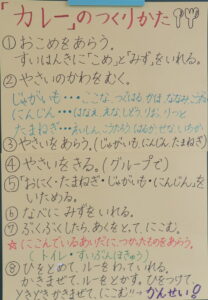 「カレー」のつくりかた
①おこめをあらう。
すいはんきに「こめ」と「みず」をいれる。
②やさいのかわをむく。
じゃがいも・・・
にんじん・・・
たまねぎ・・・
③やさいをあらう。(じゃがいも、にんじん、たまねぎ)
④やさいをきる。(グループで)
⑤「おにく・たまねぎ・じゃがいも・にんじん」を
いためる。
⑥なべにみずをいれる。
⑦ぶくぶくしたら、あくをとって、にこむ。
☆にこんでいるあいだに、つかったものをあらう。
(トイレ・すいぶんほきゅう)
⑧ひをとめて、ルーをわっていれる。
かきまぜて、ルーをとかす。ひをつけて、
ときどきかきまぜて、にこむ!!かんせい!